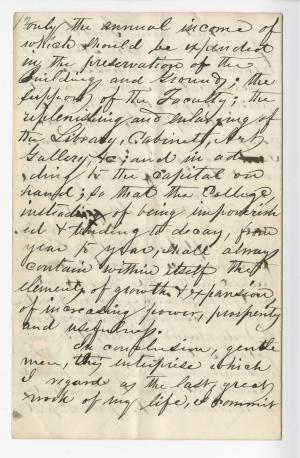 only the annual income of
which should be expended
in the preservation of the
Buildings and Grounds; the
support of the Faculty; the
replenishing and enlarging of
the Library, Cabinets, Art
Gallery, &c; and in ad-
ding to the capital on
hand; so that the College,
instead of being impoverish-
ed & tending to decay, from
year to year, shall always
contain within itself the
elements of growth & expansion
of increasing power, prosperity
and usefulness.
In conclusion, gentle
men, this enterprise which
I regard as the last, great
work of my life, I commit